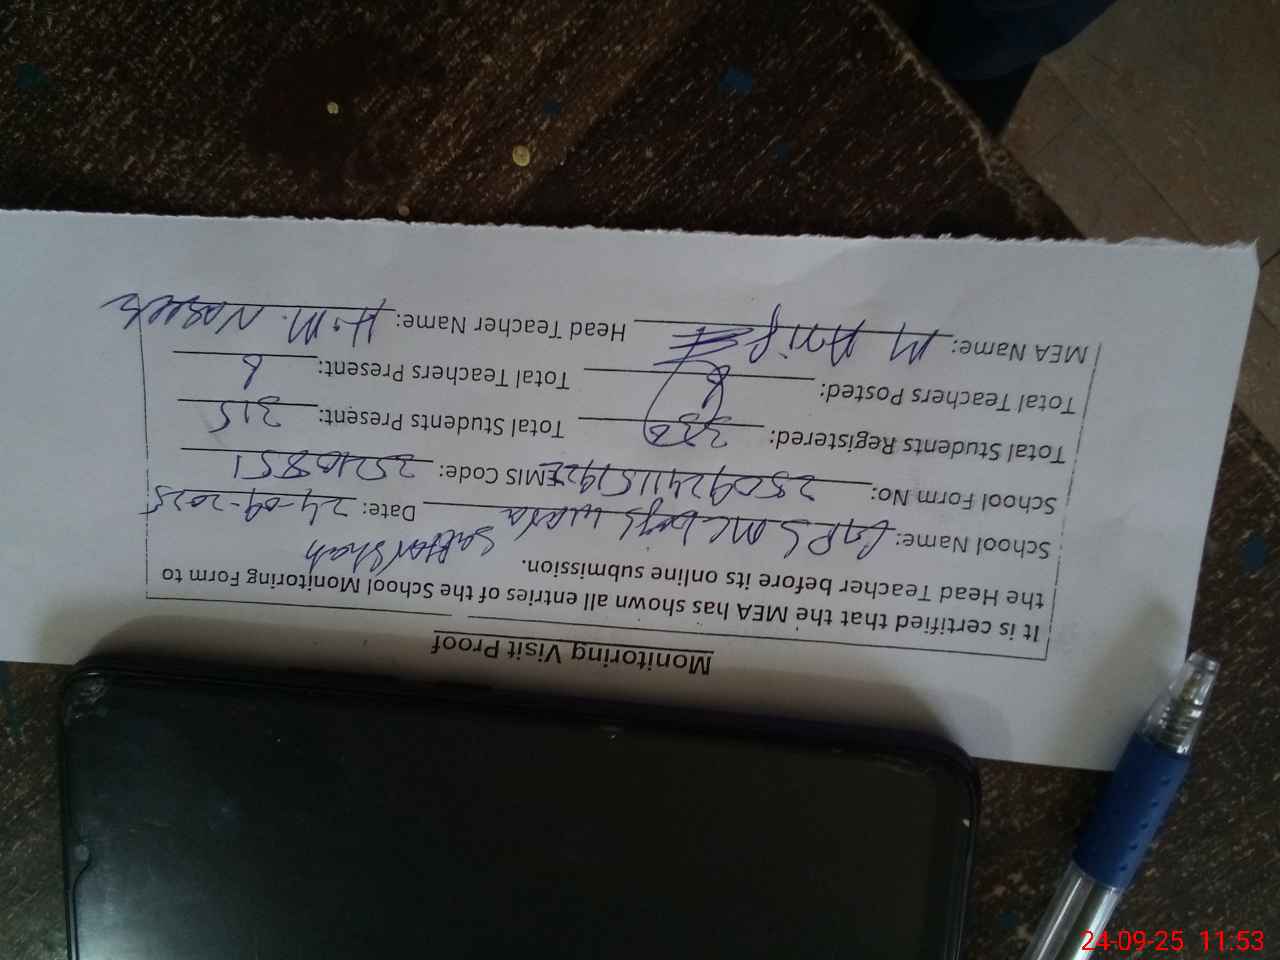 Monitoring Visit Proof
It is certified that the MEA has shown all entries of the School Monitoring Form to
the Head Teacher before its online submission.
School Name: GPS MC boys wara Sattar Shah Date: 24-09-2025
School Form No: EMIS Code:
Total Students Registered: Total Students Present: 315
Total Teachers Posted: Total Teachers Present: 6
MEA Name: M Head Teacher Name: H.M.
24-09-25 11:53